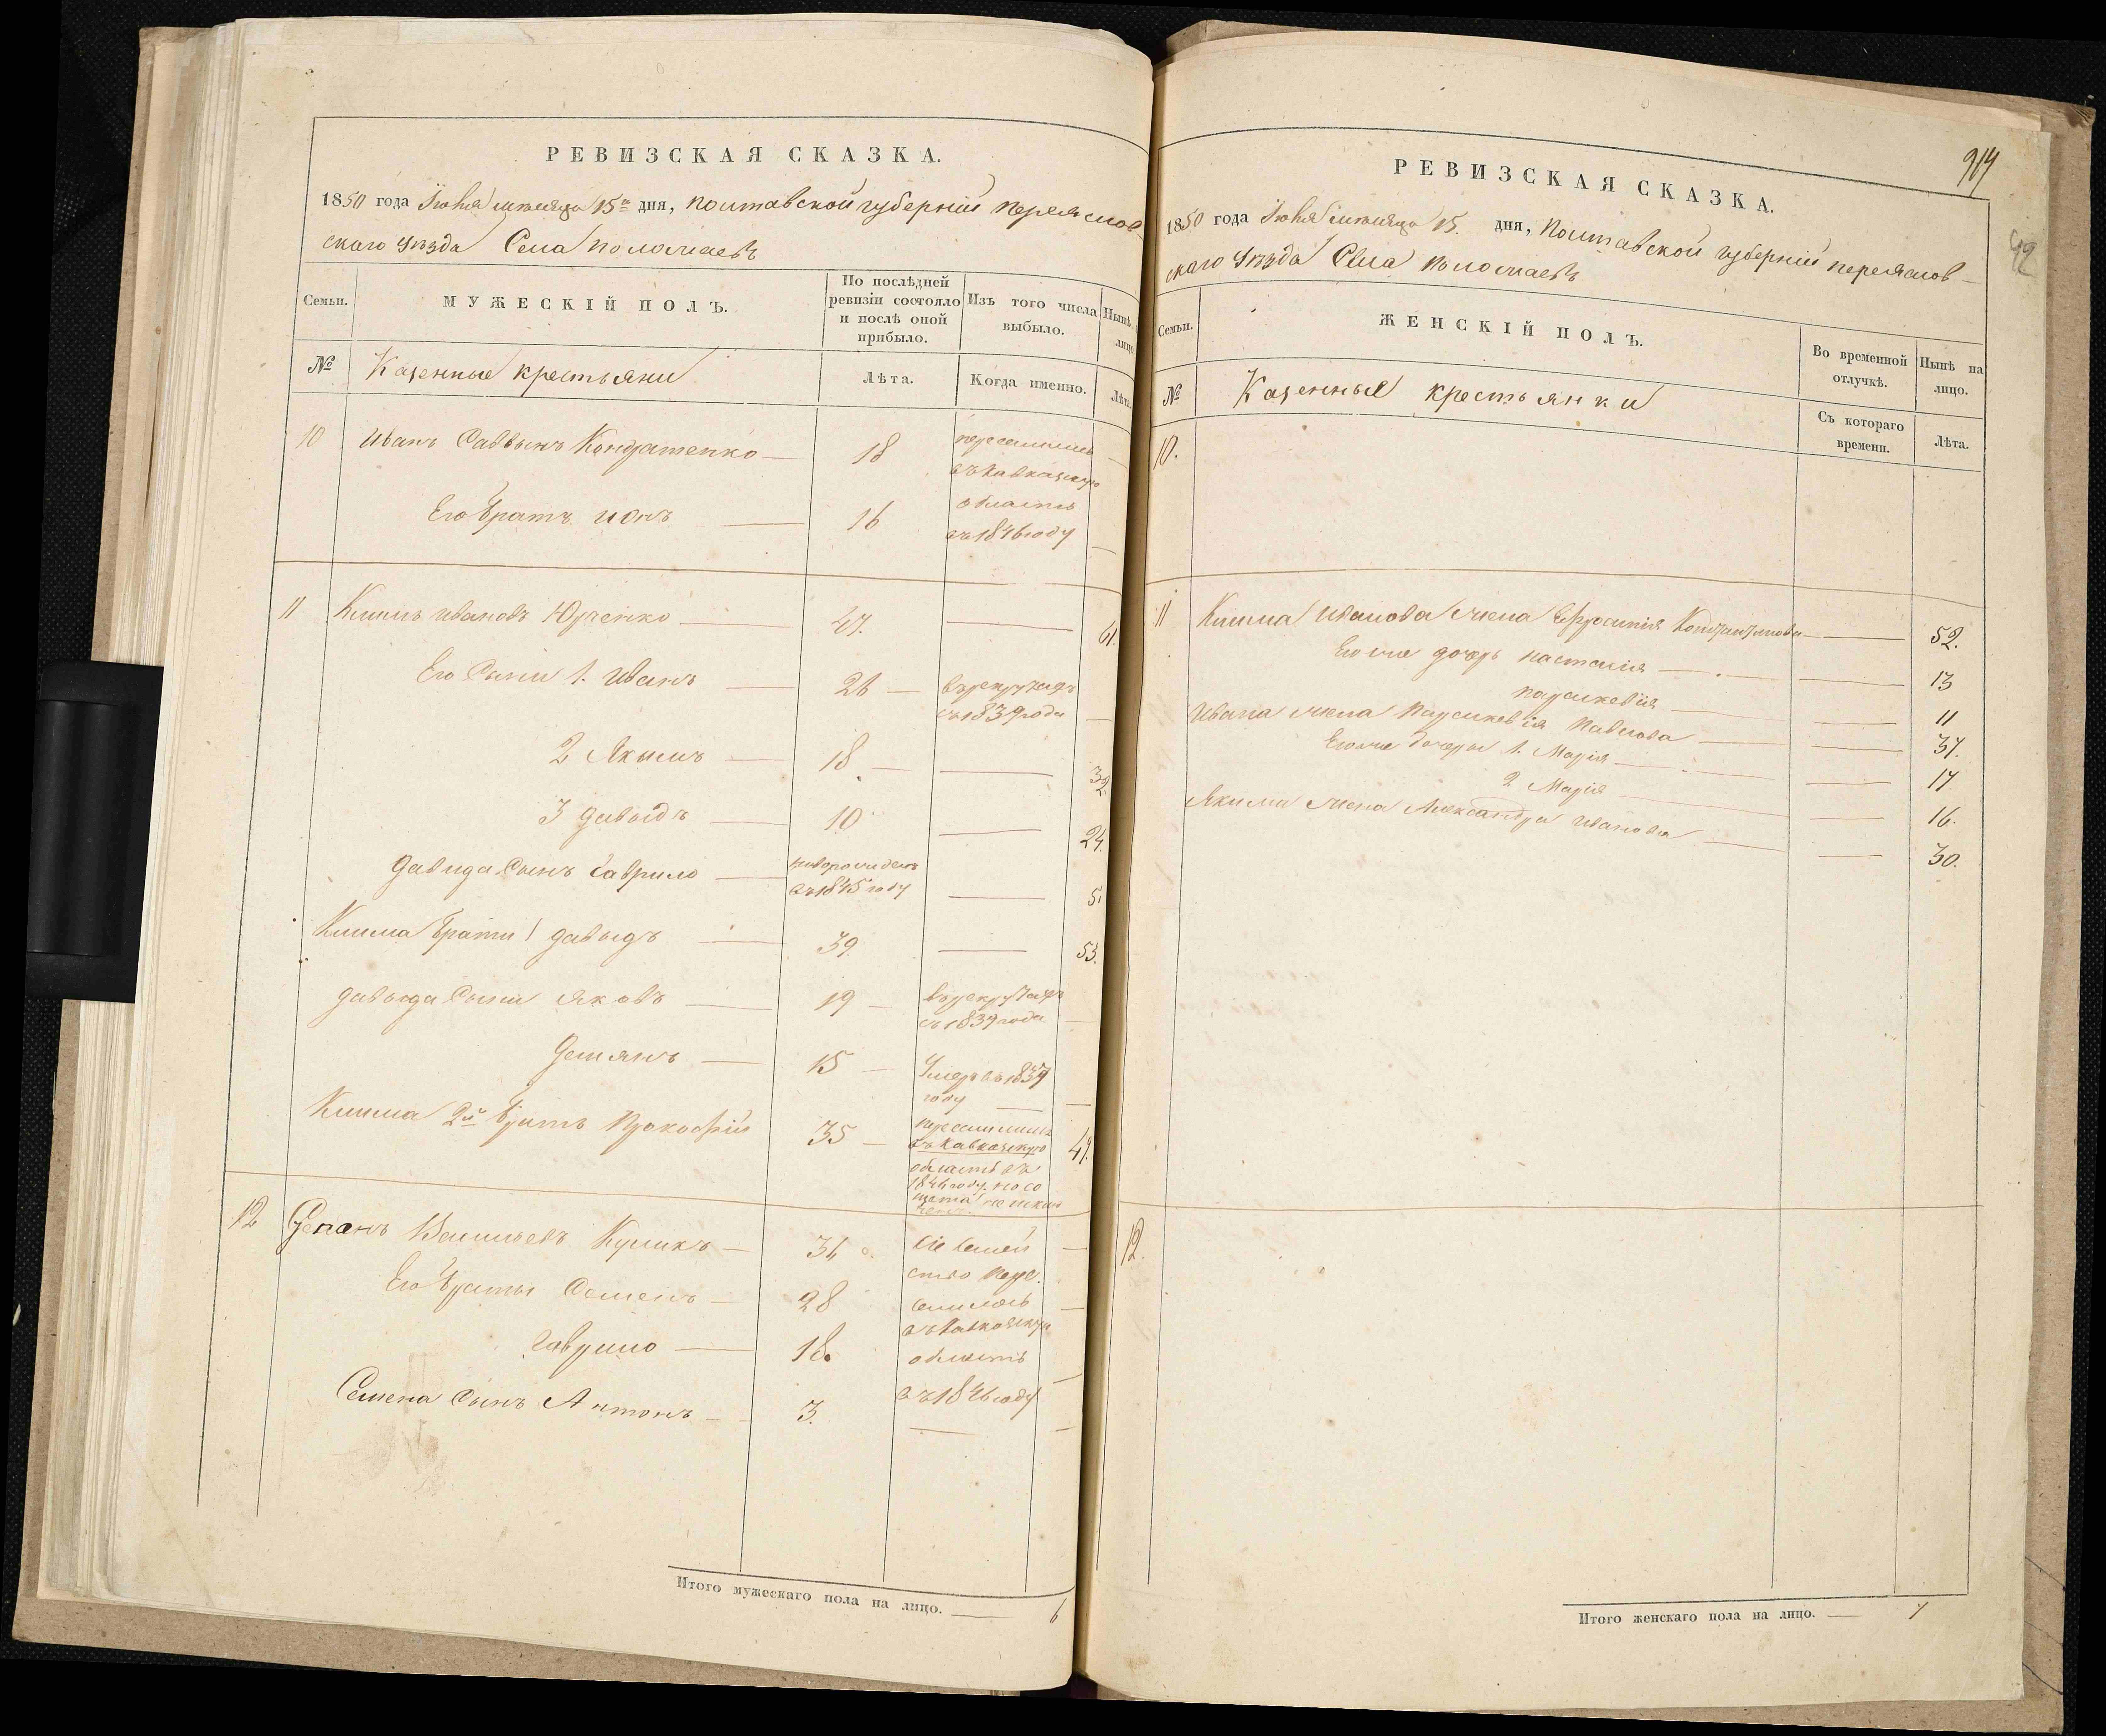 РЕВИЗСКАЯ СКАЗКА.
1850 года Іюня мѣсяца 15го дня, Полтавской губерніи Переяслов-
скаго уѣзда Села
Семьи.
МУЖЕСКІЙ ПОЛЪ.
По послѣдней ревизіи состояло и послѣ оной прибыло.
Изъ того числа выбыло.
Нынѣ лицо
№
Казенные крестьяни
Лѣта.
Когда именно.
Лѣта
10 Иванъ Саввынъ Кондратенко 18 переселились
въ Кавказскую
Его братъ Ионъ 16 область
въ 1846 году
11 Климъ Ивановъ Юрченко 47. 61.
Его Сыни 1. Иванъ 26 въ рекрутахъ
съ 1839 года
2 Якымъ 18 32.
3 Давыдъ 10 24.
Давида Сынъ Гаврило новорожденъ
въ 1845 году 5.
Клима брати 1 Давыдъ 39. 53.
Давыда Сыни Яковъ 19 въ рекрутахъ
съ 1839 года
Демянъ 15 Умеръ въ 1837
году
Клима 2й братъ Прокофій 35 переселился 49.
въ Кавказскую
область въ
1846 году, но со
щета не исклю
ченъ
12 Степанъ Васильевъ Куликъ 36 Сіе Семей
ство пере-
Его браты Семенъ 28 селилось
въ Кавказскую
Гаврило 18. область
Семена Сынъ Антонъ 3. въ 1846 году
Итого мужескаго пола на лицо. 6
914
42
РЕВИЗСКАЯ СКАЗКА.
1850 года Іюня мѣсяца 15. дня, Полтавской губерніи Переяслов-
скаго уѣзда Села
Семьи.
ЖЕНСКІЙ ПОЛЪ.
Во временной отлучкѣ.
Нынѣ на лицо.
№
Казенные крестьянки
Съ котораго времени.
Лѣта.
10.
11 Клима Иванова жена Ефросинія Константинова 52.
Его же дочерь Настасія 13
Параскевія 11
Ивана жена Параскевія Павлова 37.
Его же дочери 1. Марія 17
2 Марія 16.
Якима жена Александра Иванова 30.
12.
Итого женскаго пола на лицо. 7